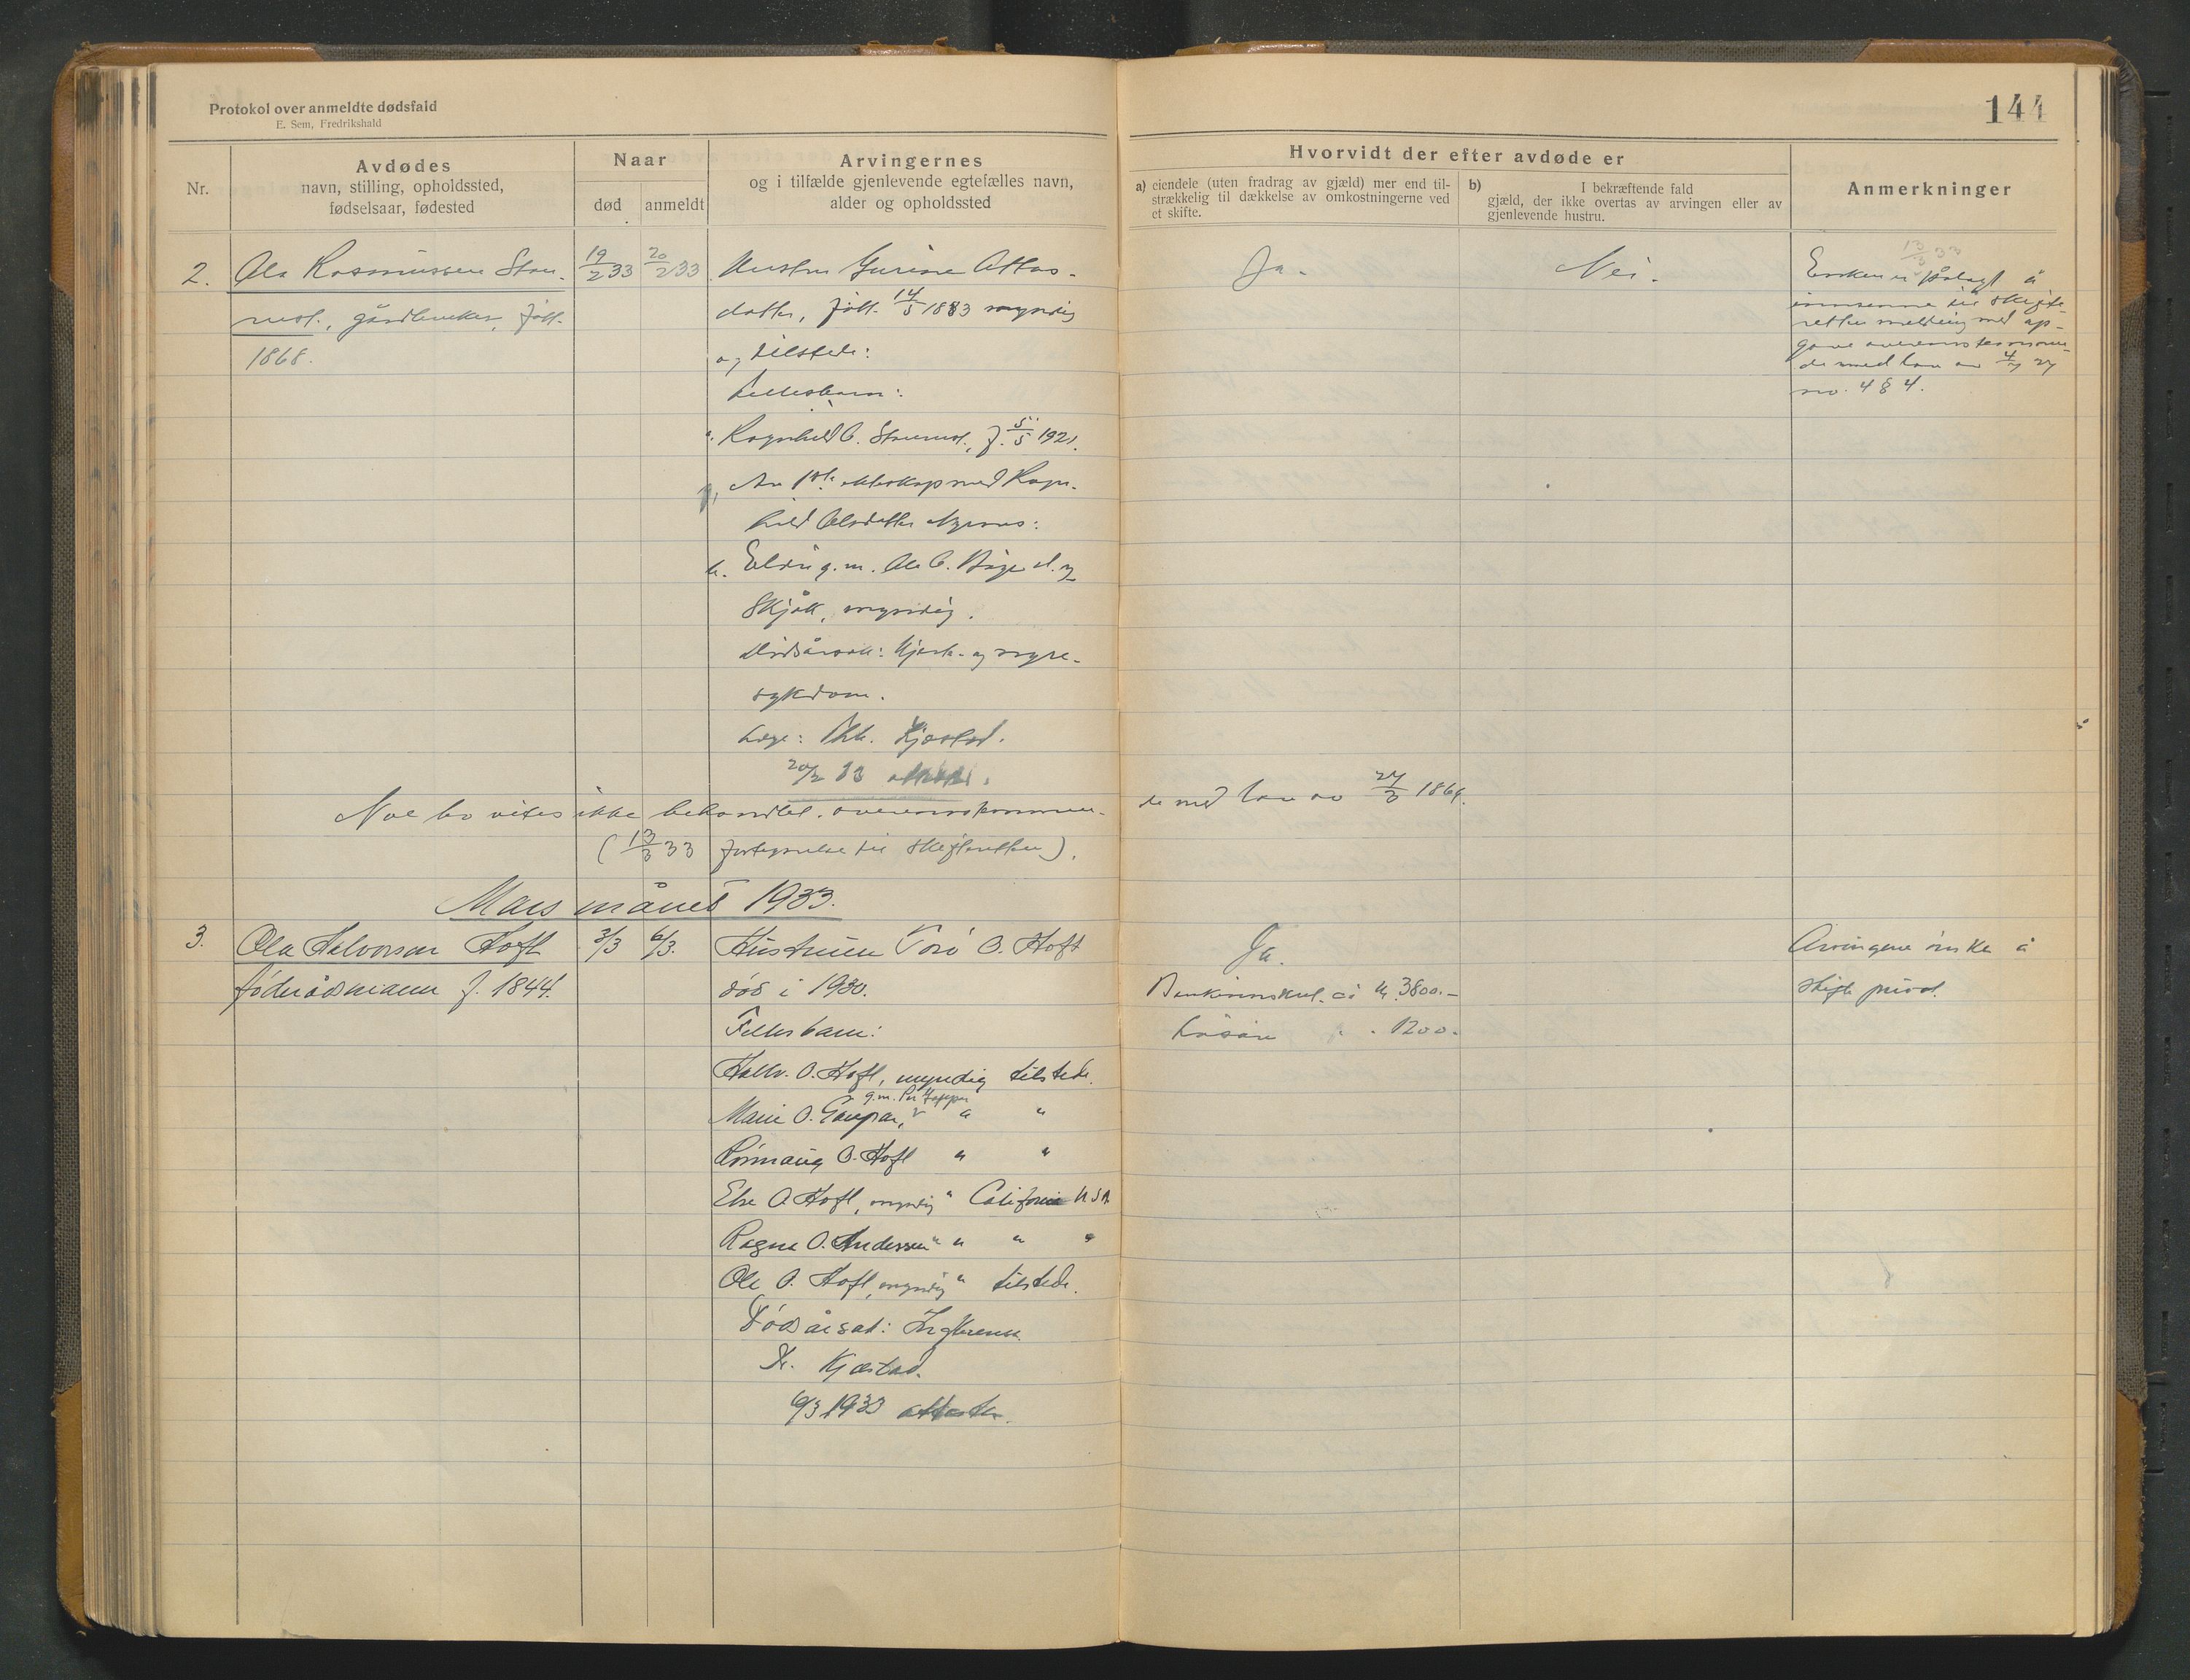 Protokol over anmeldte dødsfald
E. Sem, Fredrikshald
144
Nr.
Avdødes
navn, stilling, opholdssted,
fødselsaar, fødested
Naar
død
anmeldt
Arvingernes
og i tilfælde gjenlevende egtefælles navn,
alder og opholdssted
Hvorvidt der efter avdøde er
a) eiendele (uten fradrag av gjæld) mer end til-
strækkelig til dækkelse av omkostningerne ved
et skifte.
b) I bekræftende fald
gjæld, der ikke overtas av arvingen eller av
gjenlevende hustru.
Anmerkninger
2.
Ola Rasmussen
gårdbruker, født
1868.
19/2 33
20/2 33
Hustru Gurine
datter, født 14/5 1883 myndig
og tilstede:
Fellesbarn:
a. Ragnhild O. f. 5/5 1921.
Av 1ste ekteskap med Ragn-
hild Olsdatter
b. Eldri g. m. Ola O.
Skjåk, myndig.
Dødsårsak: Hjerte- og nyre-
sykdom.
Læge: Kjæstad.
20/2 33
Ja.
Nei.
13/3 33
Enken er pålagt å
innsende til skifte-
retten melding med op-
gave overensstemmen-
de med lov av 4/7 27
no. 4 § 4.
Noe bo vites ikke behandlet overensstemmen-
de med lov av 1869.
(13/3 33 til skifteretten).
Mars måned 1933.
3.
Ola Halvorsen Hoft
føderådsmann f. 1844.
3/3
6/3.
Hustruen O. Hoft
død i 1930.
Fellesbarn:
Hallv. O. Hoft, myndig tilstede.
g.m. Per
Marie O. " "
Rønnaug O. Hoft " "
Else O. Hoft, myndig " California U.S.A.
Ragna O. Andersen " " " "
Ole O. Hoft, myndig " tilstede.
Dødsårsak:
Dr. Kjæstad.
6/3 1933 attester.
Ja.
Bankinnskud. ca. kr. 3800.-
Løsøre " " 1200.-
Arvingene ønsker å
skifte privat.